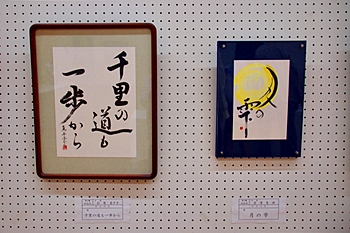 千里の
道も
一歩から
月の
雫
千里の道も一歩から
月の雫